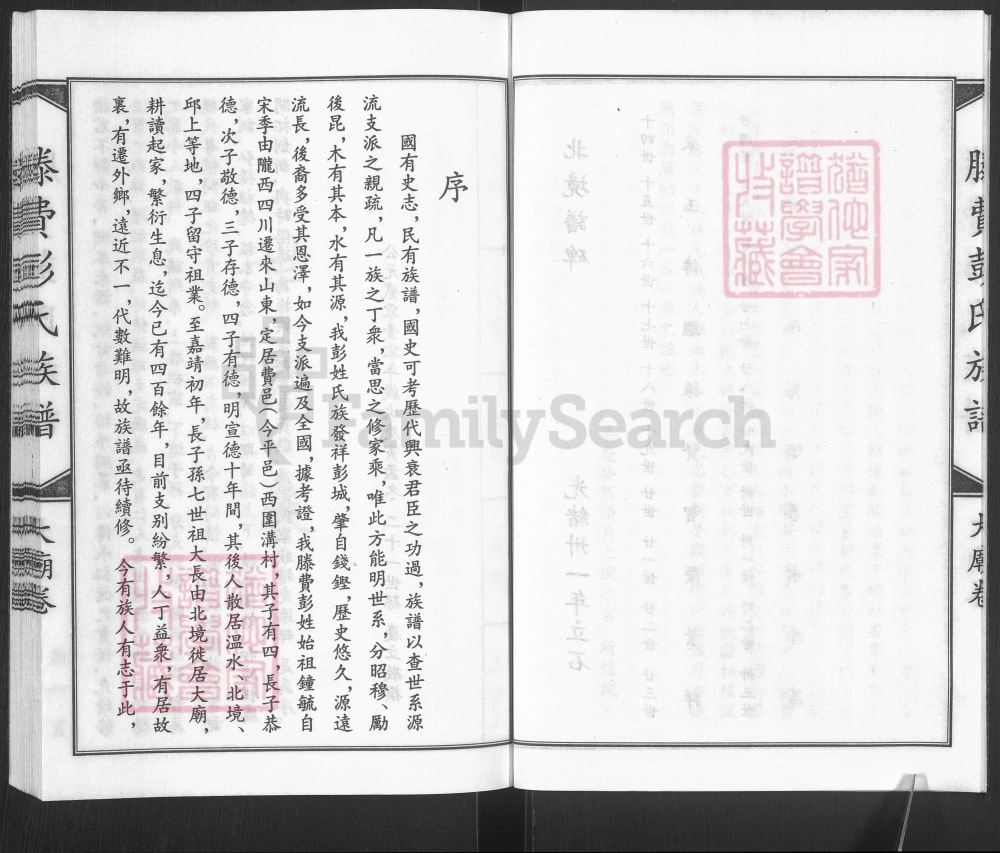 滕費彭氏族譜
大廟卷
猶他家譜學會珍藏
北境譜碑
光緒卅一年立石
序
國有史志，民有族譜，國史可考歷代興衰君臣之功過，族譜以查世系源
流支派之親疏，凡一族之丁衆，當思之修家乘，唯此方能明世系，分昭穆、勵
後昆，木有其本，水有其源，我彭姓氏族發祥彭城，肇自錢鏗，歷史悠久，源遠
流長，後裔多受其恩澤，如今支派遍及全國，據考證，我滕費彭姓始祖鐘毓自
宋季由隴西四川遷來山東，定居費邑（今平邑）西圍溝村，其子有四，長子恭
德，次子敬德，三子存德，四子有德，明宣德十年間，其後人散居温水、北境、
邱上等地，四子留守祖業。至嘉靖初年，長子孫七世祖大長由北境徙居大廟，
耕讀起家，繁衍生息，迄今已有四百餘年，目前支别紛繁，人丁益衆，有居故
裏，有遷外鄉，遠近不一，代數難明，故族譜亟待續修。今有族人有志于此，
滕費彭氏族譜
大廟卷
FamilySearch